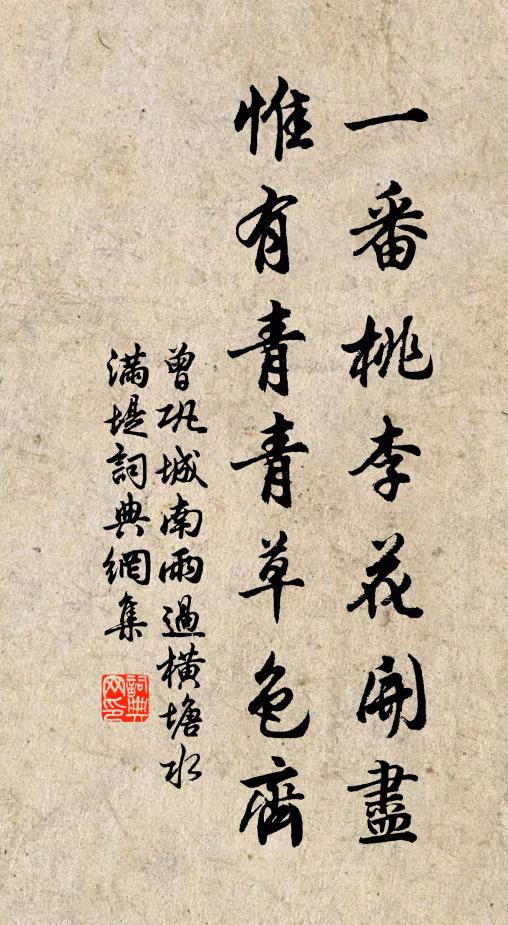 一番桃李花開盡
惟有青青草色齊
曾巩城南雨過橫塘水
滿堤詞典網集
詞典
网印